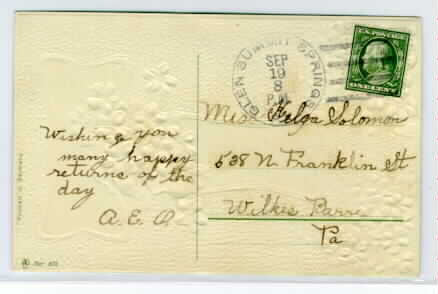 GLEN SUMMIT SPRINGS
SEP
19
8
P.M.
U.S. POSTAGE
ONE CENT
Wishing you
many happy
returns of the
day
A.E.A.
Miss Helga Solomon
538 N. Franklin St
Wilkes Barre
Pa